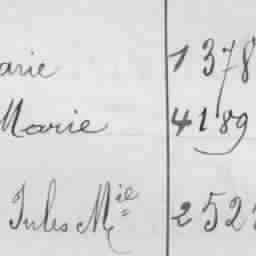 arie 1378
Marie 4189
Jules Mie 252